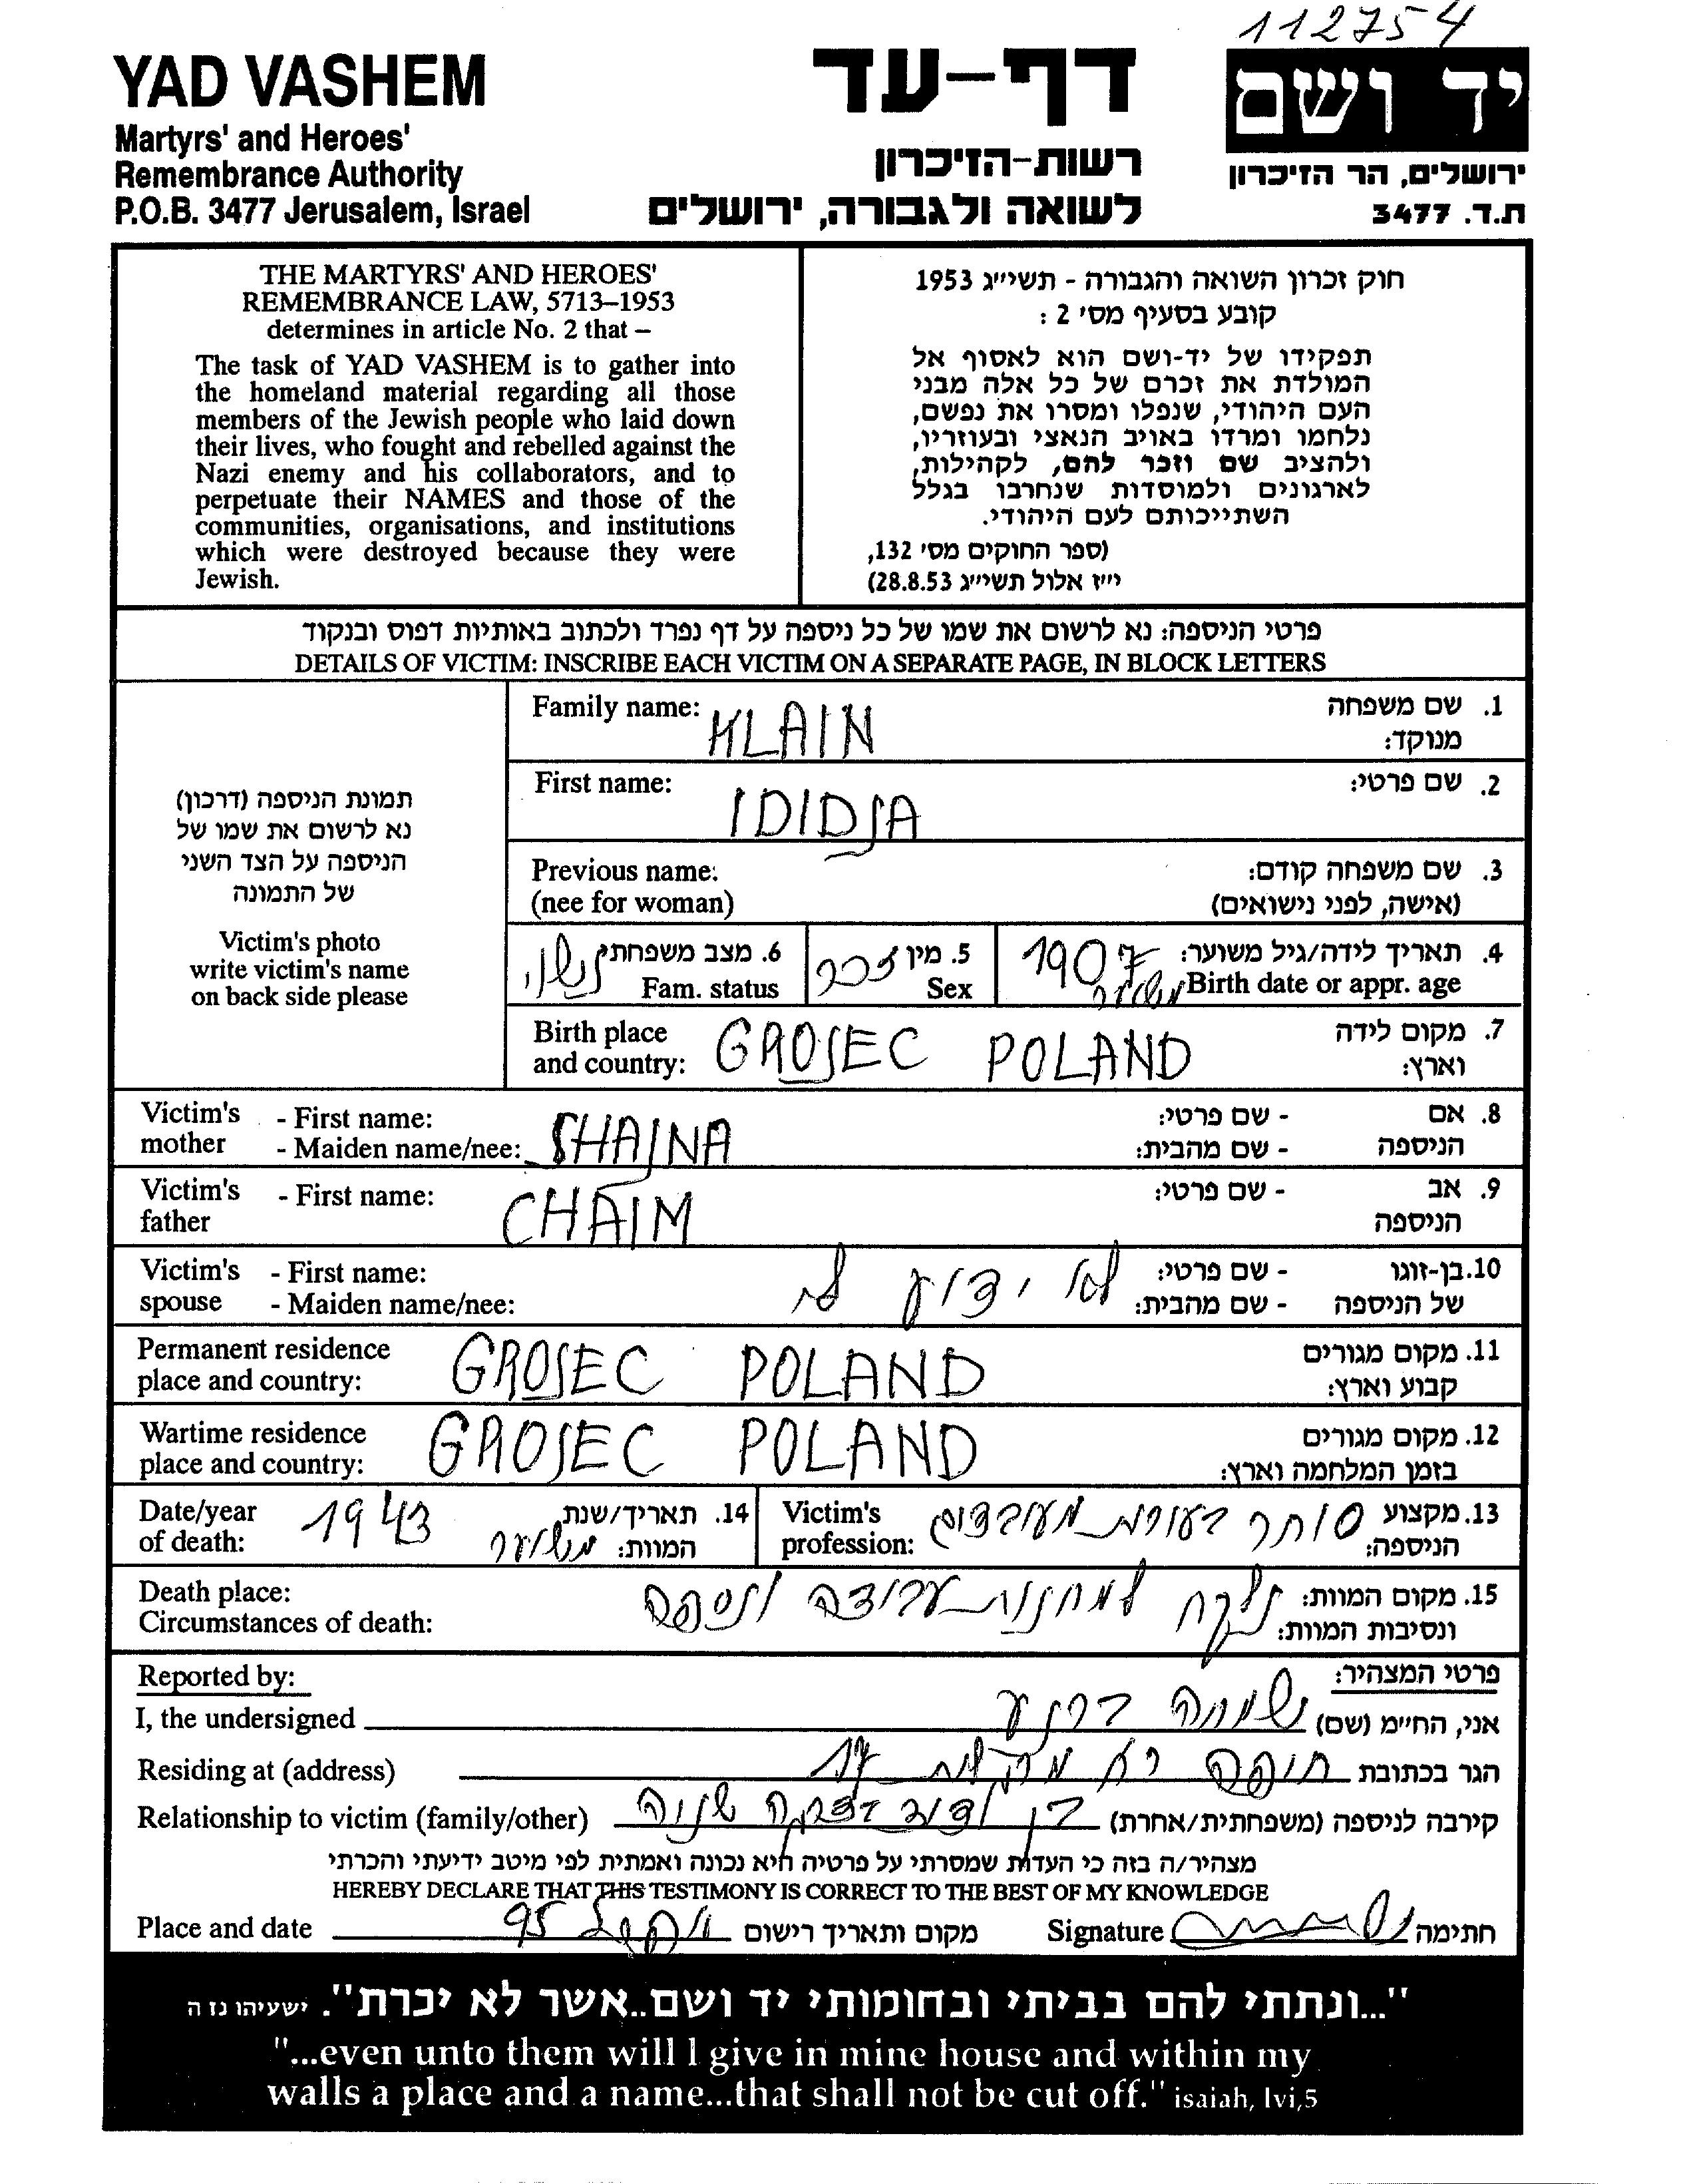 112754
YAD VASHEM
Martyrs' and Heroes'
Remembrance Authority
P.O.B. 3477 Jerusalem, Israel
דף-עד
רשות-הזיכרון
לשואה ולגבורה, ירושלים
יד ושם
ירושלים, הר הזיכרון
ת.ד. 3477
THE MARTYRS' AND HEROES'
REMEMBRANCE LAW, 5713–1953
determines in article No. 2 that –
The task of YAD VASHEM is to gather into
the homeland material regarding all those
members of the Jewish people who laid down
their lives, who fought and rebelled against the
Nazi enemy and his collaborators, and to
perpetuate their NAMES and those of the
communities, organisations, and institutions
which were destroyed because they were
Jewish.
חוק זכרון השואה והגבורה - תשי״ג 1953
קובע בסעיף מס׳ 2 :
תפקידו של יד-ושם הוא לאסוף אל
המולדת את זכרם של כל אלה מבני
העם היהודי, שנפלו ומסרו את נפשם,
נלחמו ומרדו באויב הנאצי ובעוזריו,
ולהציב שם וזכר להם, לקהילות,
לארגונים ולמוסדות שנחרבו בגלל
השתייכותם לעם היהודי.
(ספר החוקים מס׳ 132,
י״ז אלול תשי״ג 28.8.53)
פרטי הניספה: נא לרשום את שמו של כל ניספה על דף נפרד ולכתוב באותיות דפוס ובנקוד
DETAILS OF VICTIM: INSCRIBE EACH VICTIM ON A SEPARATE PAGE, IN BLOCK LETTERS
תמונת הניספה (דרכון)
נא לרשום את שמו של
הניספה על הצד השני
של התמונה
Victim's photo
write victim's name
on back side please
Family name: KLAIN 1. שם משפחה
מנוקד:
First name: IDIDJA 2. שם פרטי:
Previous name: 3. שם משפחה קודם:
(nee for woman) (אישה, לפני נישואים)
4. תאריך לידה/גיל משוער: 1907 משוער
Birth date or appr. age
5. מין זכר
Sex
6. מצב משפחתי נשוי
Fam. status
Birth place GROJEC POLAND 7. מקום לידה
and country: וארץ:
Victim's - First name: - שם פרטי: 8. אם
mother - Maiden name/nee: SHAJNA - שם מהבית: הניספה
Victim's - First name: CHAIM - שם פרטי: 9. אב
father הניספה
Victim's - First name: לא ידוע לי - שם פרטי: 10. בן-זוגו
spouse - Maiden name/nee: - שם מהבית: של הניספה
Permanent residence GROJEC POLAND 11. מקום מגורים
place and country: קבוע וארץ:
Wartime residence GROJEC POLAND 12. מקום מגורים
place and country: בזמן המלחמה וארץ:
Date/year 1943 14. תאריך/שנת
of death: משוער המוות:
Victim's סוחר בעורות מעובדים 13. מקצוע
profession: הניספה:
Death place: נלקח למחנות עבודה ונספה 15. מקום המוות:
Circumstances of death: ונסיבות המוות:
Reported by: פרטי המצהיר:
I, the undersigned שמחה אני, החי״מ (שם)
Residing at (address) חיפה 17 הגר בכתובת
Relationship to victim (family/other) בן דוד שניה קירבה לניספה (משפחתית/אחרת)
מצהיר/ה בזה כי העדות שמסרתי על פרטיה היא נכונה ואמתית לפי מיטב ידיעתי והכרתי
HEREBY DECLARE THAT THIS TESTIMONY IS CORRECT TO THE BEST OF MY KNOWLEDGE
Place and date 95 מקום ותאריך רישום Signature חתימה
"...ונתתי להם בביתי ובחומותי יד ושם..אשר לא יכרת". ישעיהו נז ה
"...even unto them will I give in mine house and within my
walls a place and a name...that shall not be cut off." isaiah, lvi,5